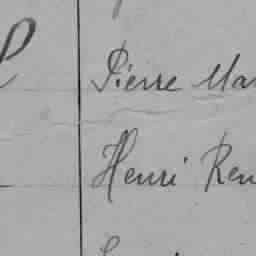 Pierre Mar
Henri Ren